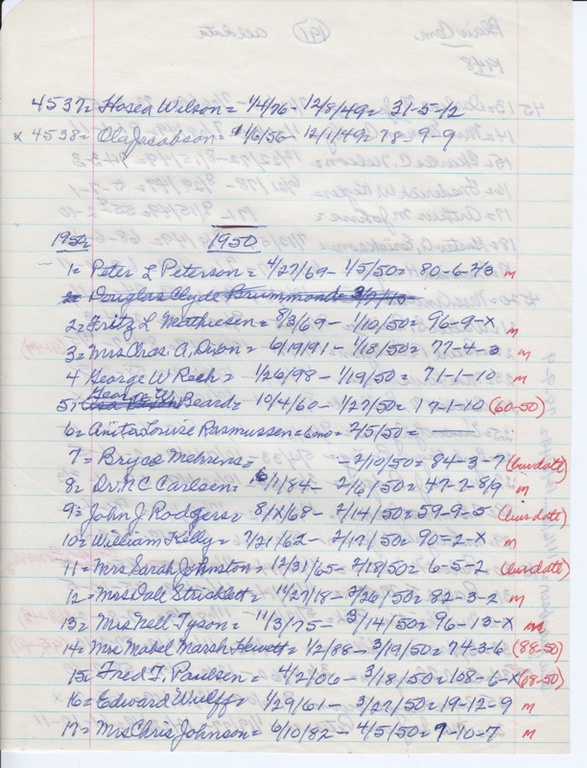 4537= Hosea Wilson= 1/4/76- 12/8/49= 31-5-12
x 4538= Ola Jacobson= 1/6/56- 12/1/49= 78-9-9
1950= 1950
1= Peter L Peterson= 4/27/69- 1/5/50= 80-6-2/3 m
2= Douglas Clyde Brummond= 3/7/13-
2= Fritz L Matthiesen= 8/3/69- 1/10/50= 96-9-X m
3= Mrs Chas. A, Dixon= 6/19/91- 1/18/50= 77-4-3 m
4 George W Rech= 1/26/98- 1/19/50= 71-1-10 m
George W.
5= Beard= 10/4/60- 1/27/50= 17-1-10 (60-50)
6= Anita Louise Rasmussen= 6 mo= 2/5/50=
7= Bryce Mehrens= -2/10/50= 84-3-7 (bur date)
8= Dr. N C Carlsen= 6/1/84- 2/6/50= 47-2-8/9 m
9= John J Rodgers= 8/X/68- 2/14/50= 59-9-5 (bur date)
10= William Kelly= 7/21/62- 2/17/50= 90-2-X m
11= Mrs. Sarah Johnston= 12/31/65- 2/18/50= 6-5-2 (bur date)
12= Mrs Dale Stricklett= 11/27/18- 2/26/50= 82-3-2 m
13= Mrs Nell Tyson= 11/3/75- 3/14/50= 96-13-X m
14= Mrs Mabel Marsh Hewett= 1/2/88- 3/19/50= 74-3-6 (88-50)
15= Fred T. Paulsen= 4/2/06- 3/18/50= 108-6-X (08-50)
16= Edward Wulff= 1/29/61- 3/27/50= 19-12-9 m
17= Mrs Chris Johnson= 6/10/82- 4/5/50= 9-10-7 m